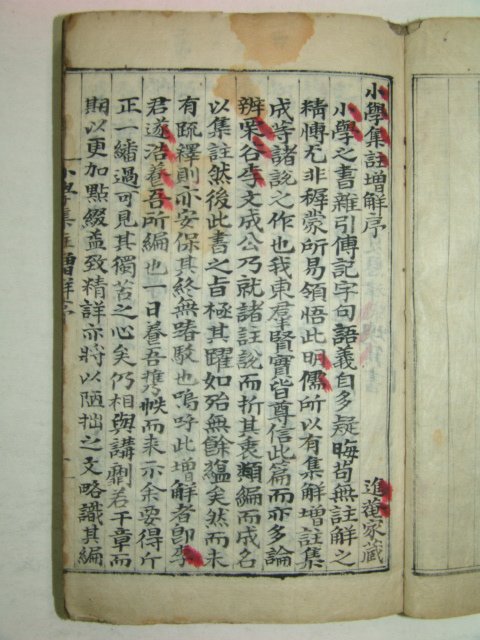 小學集註增解序
進菴家藏
小學之書雜引傳記字句語義自多疑晦苟無註解之
精愽尤非穉蒙所易領悟此明儒所以有集解增註集
成等諸說之作也我東羣賢實皆尊信此篇而亦多論
辨栗谷李文成公乃就諸註說而折其衷類編而成名
以集註然後此書之旨極其躍如殆無餘蘊矣然而未
有疏釋則亦安保其終無踳駁也嗚呼此增解者卽李
君遂浩養吾所編也一日養吾携帙而來示余要得斤
正一繙過可見其獨苦之心矣仍相與講劘若干章而
期以更加點綴益致精詳亦將以陋拙之文略識其編
小學集註增解序